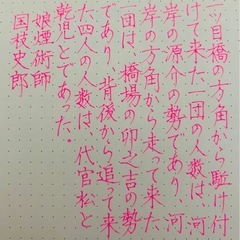 一ッ目橋の方角から駈け付
けて来た一団の人数は、河
岸の源介の勢であり、河
岸の方角から走って来た
一団は、橋場の卯之吉の勢
であり、背後から追って来
た四人の人数は、代官松と
乾児とであった。
娘煙術師
国枝史郎